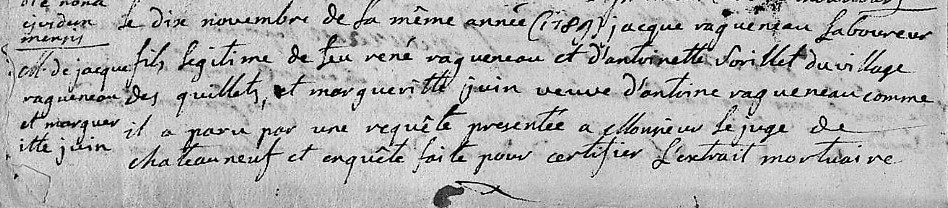 die nona
ejusdem
mensis
M. de jacque
ragueneau
et marguer
itte juin
le dix novembre de la même année (1789) jacque ragueneau laboureur
fils legitime de feu rené ragueneau et d'antoinette vorillet du village
des quillets, et margueritte juin veuve d'antoine ragueneau comme
il a paru par une requête presentée a Monsieur le juge de
chateauneuf et enquête faite pour certifier l'extrait mortuaire